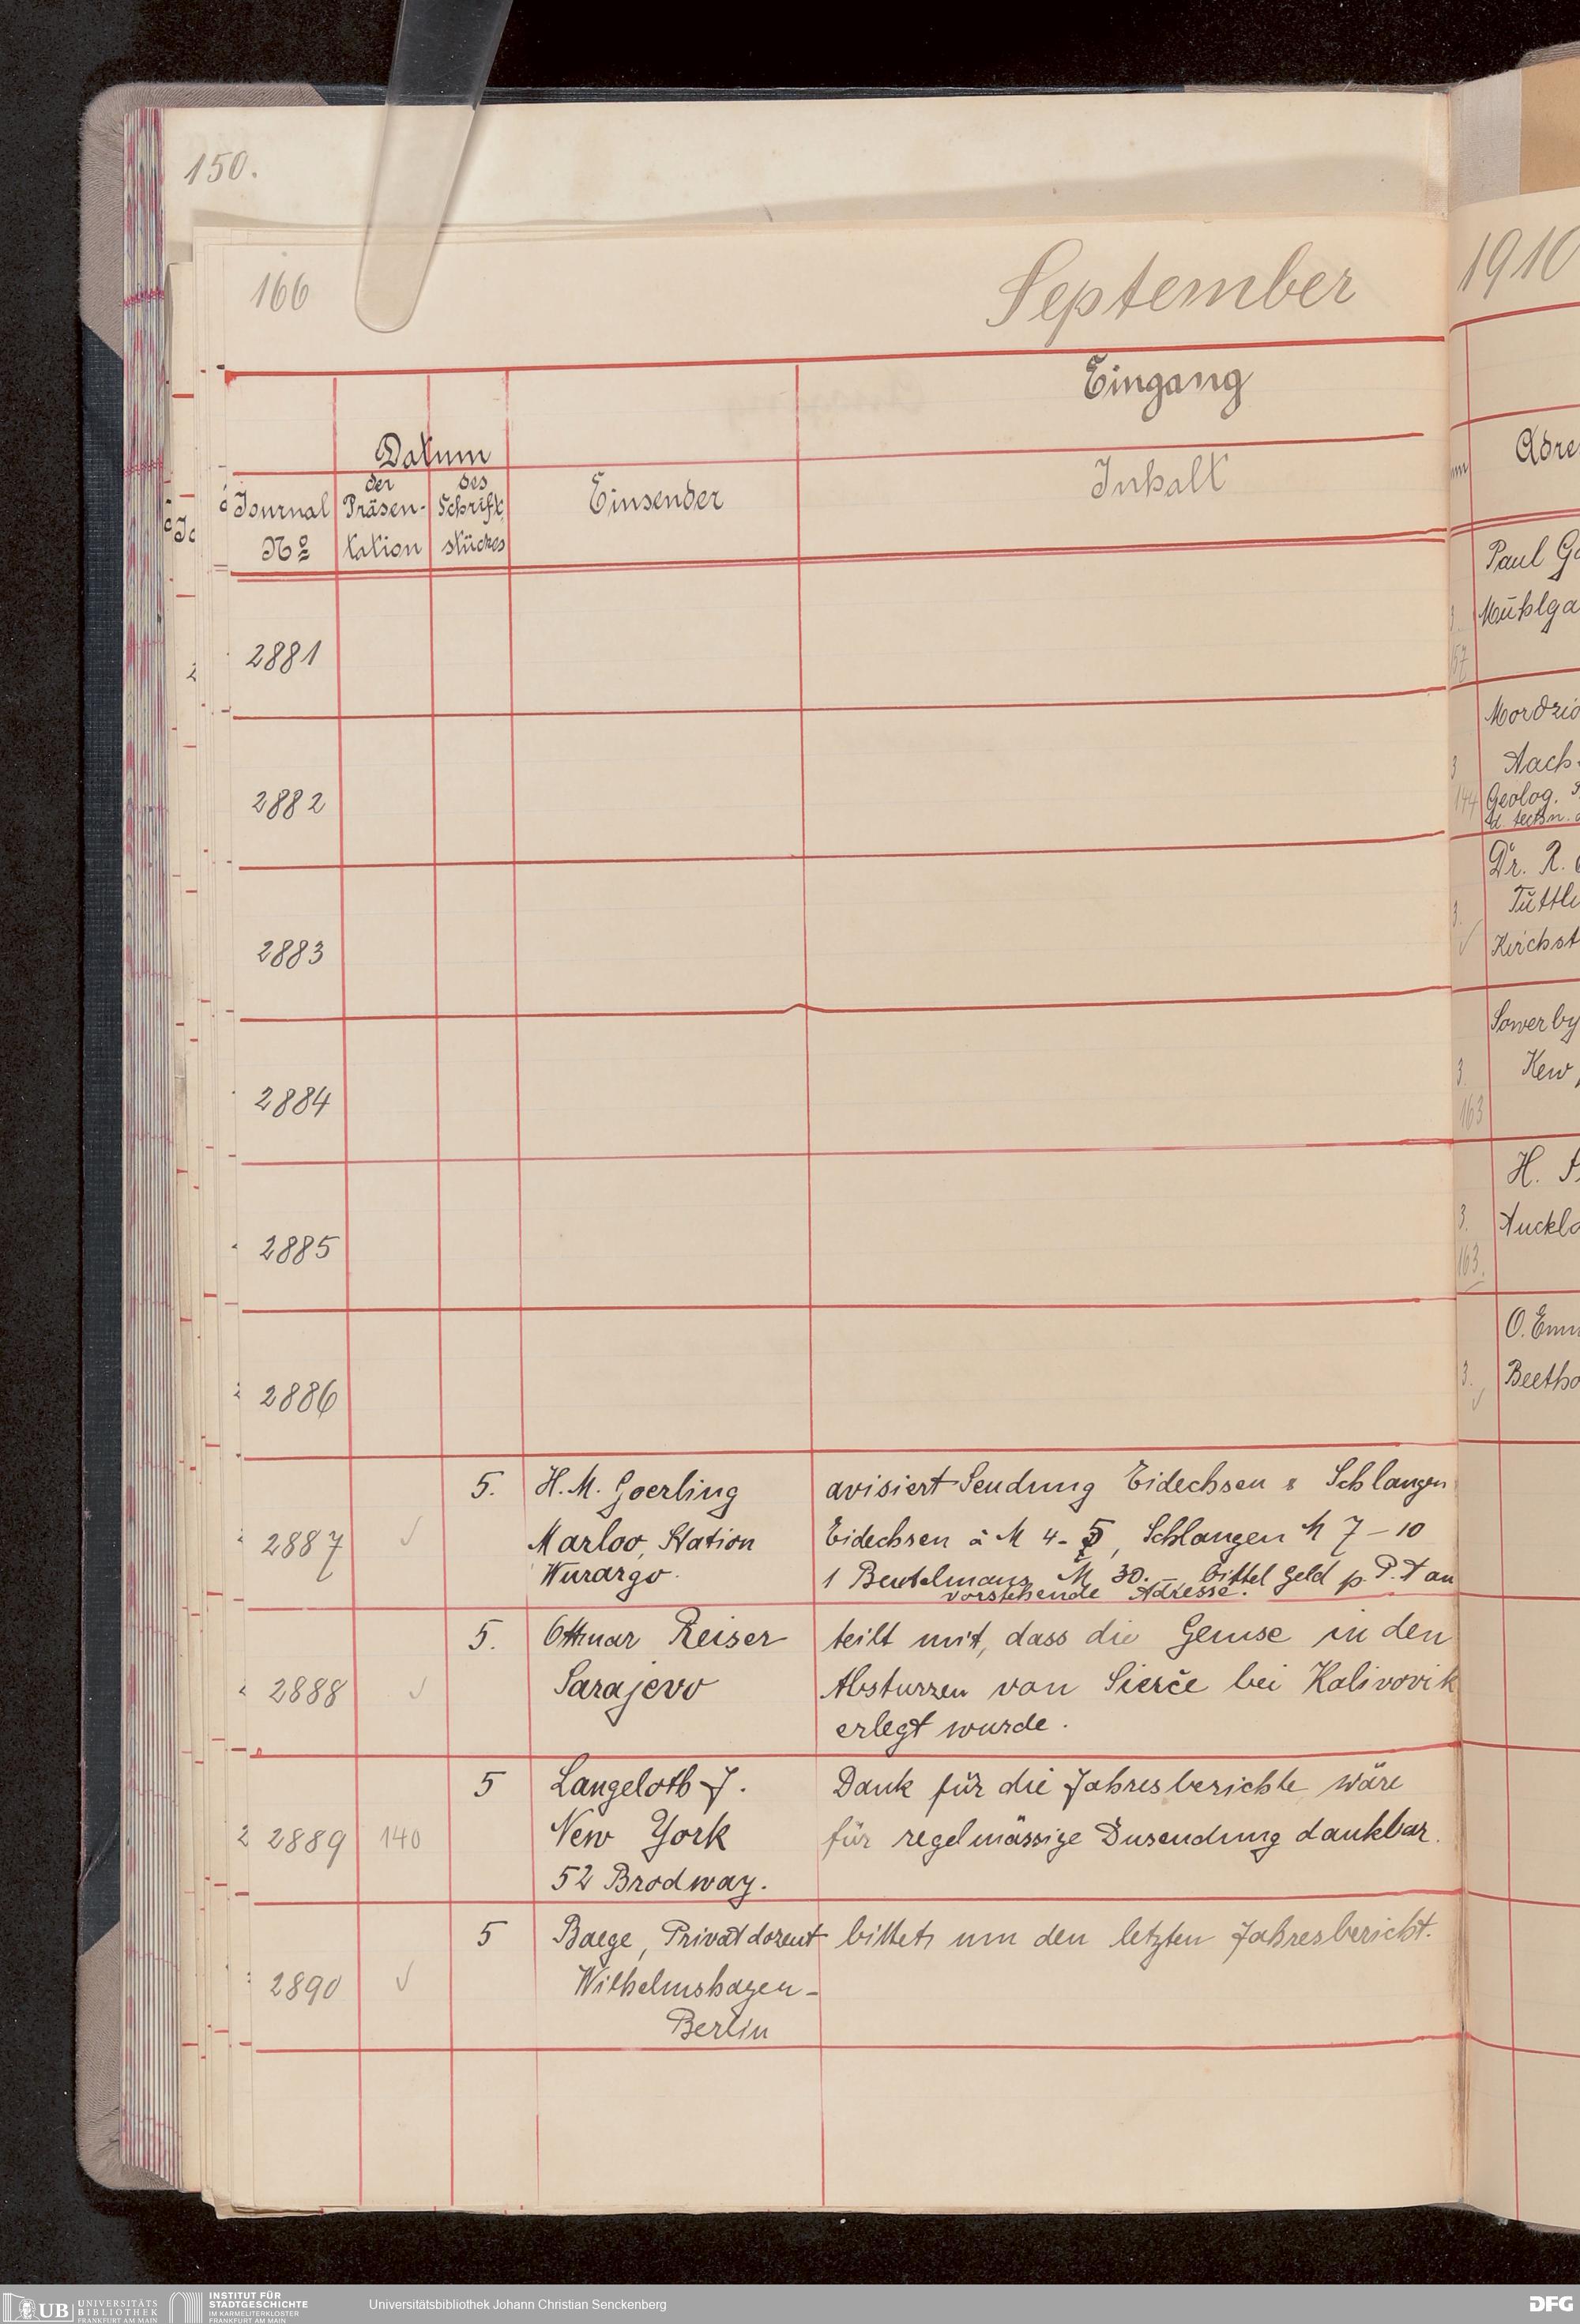 150.
166
September
1910
Eingang
Datum
Journal
No
der
Präsen-
tation
des
Schrift
stückes
Einsender
Inhalt
2881
2882
2883
2884
2885
2886
2887
5.
H. M. Goerling
Marloo, Station
Wurargo.
avisiert Sendung Eidechsen & Schlangen
Eidechsen à M 4-5, Schlangen M 7-10
1 Beutelmaus M 30.- bittet Geld p. P. A an
vorstehende Adresse.
2888
5.
Othmar Reiser
Sarajevo
teilt mit, dass die Gemse in den
Absturzen von Sierče bei Kalivovik
erlegt wurde.
2889
140
5
Langeloth J.
New York
52 Brodway.
Dank für die Jahresberichte wäre
für regelmässige Zusendung dankbar.
2890
5
Baege, Privatdozent
Wilhelmshagen-
Berlin
bittet um den letzten Jahresbericht.
Adre
Paul
Mühlga
57
Aach
144
Geolog.
d. techn.
Dr. R.
Tuttli
Kirchst
Sowerby
3
Kew,
163
H.
3.
Auckla
163.
3.
Beetho
UB UNIVERSITÄTS
BIBLIOTHEK
FRANKFURT AM MAIN
INSTITUT FÜR
STADTGESCHICHTE
IM KARMELITERKLOSTER
FRANKFURT AM MAIN
Universitätsbibliothek Johann Christian Senckenberg
DFG